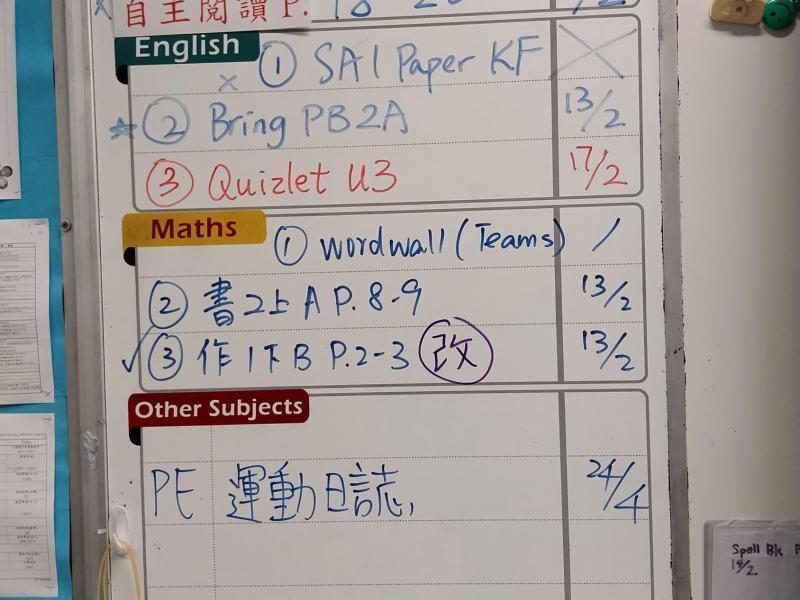 自主閱讀 P.
English
① SA1 Paper KF
② Bring PB2A 13/2
③ Quizlet U3 17/2
Maths
① wordwall (Teams) /
② 書2上A P.8-9 13/2
③ 作1下B P.2-3 改 13/2
Other Subjects
PE 運動日誌, 24/4
Spell Bk
14/2